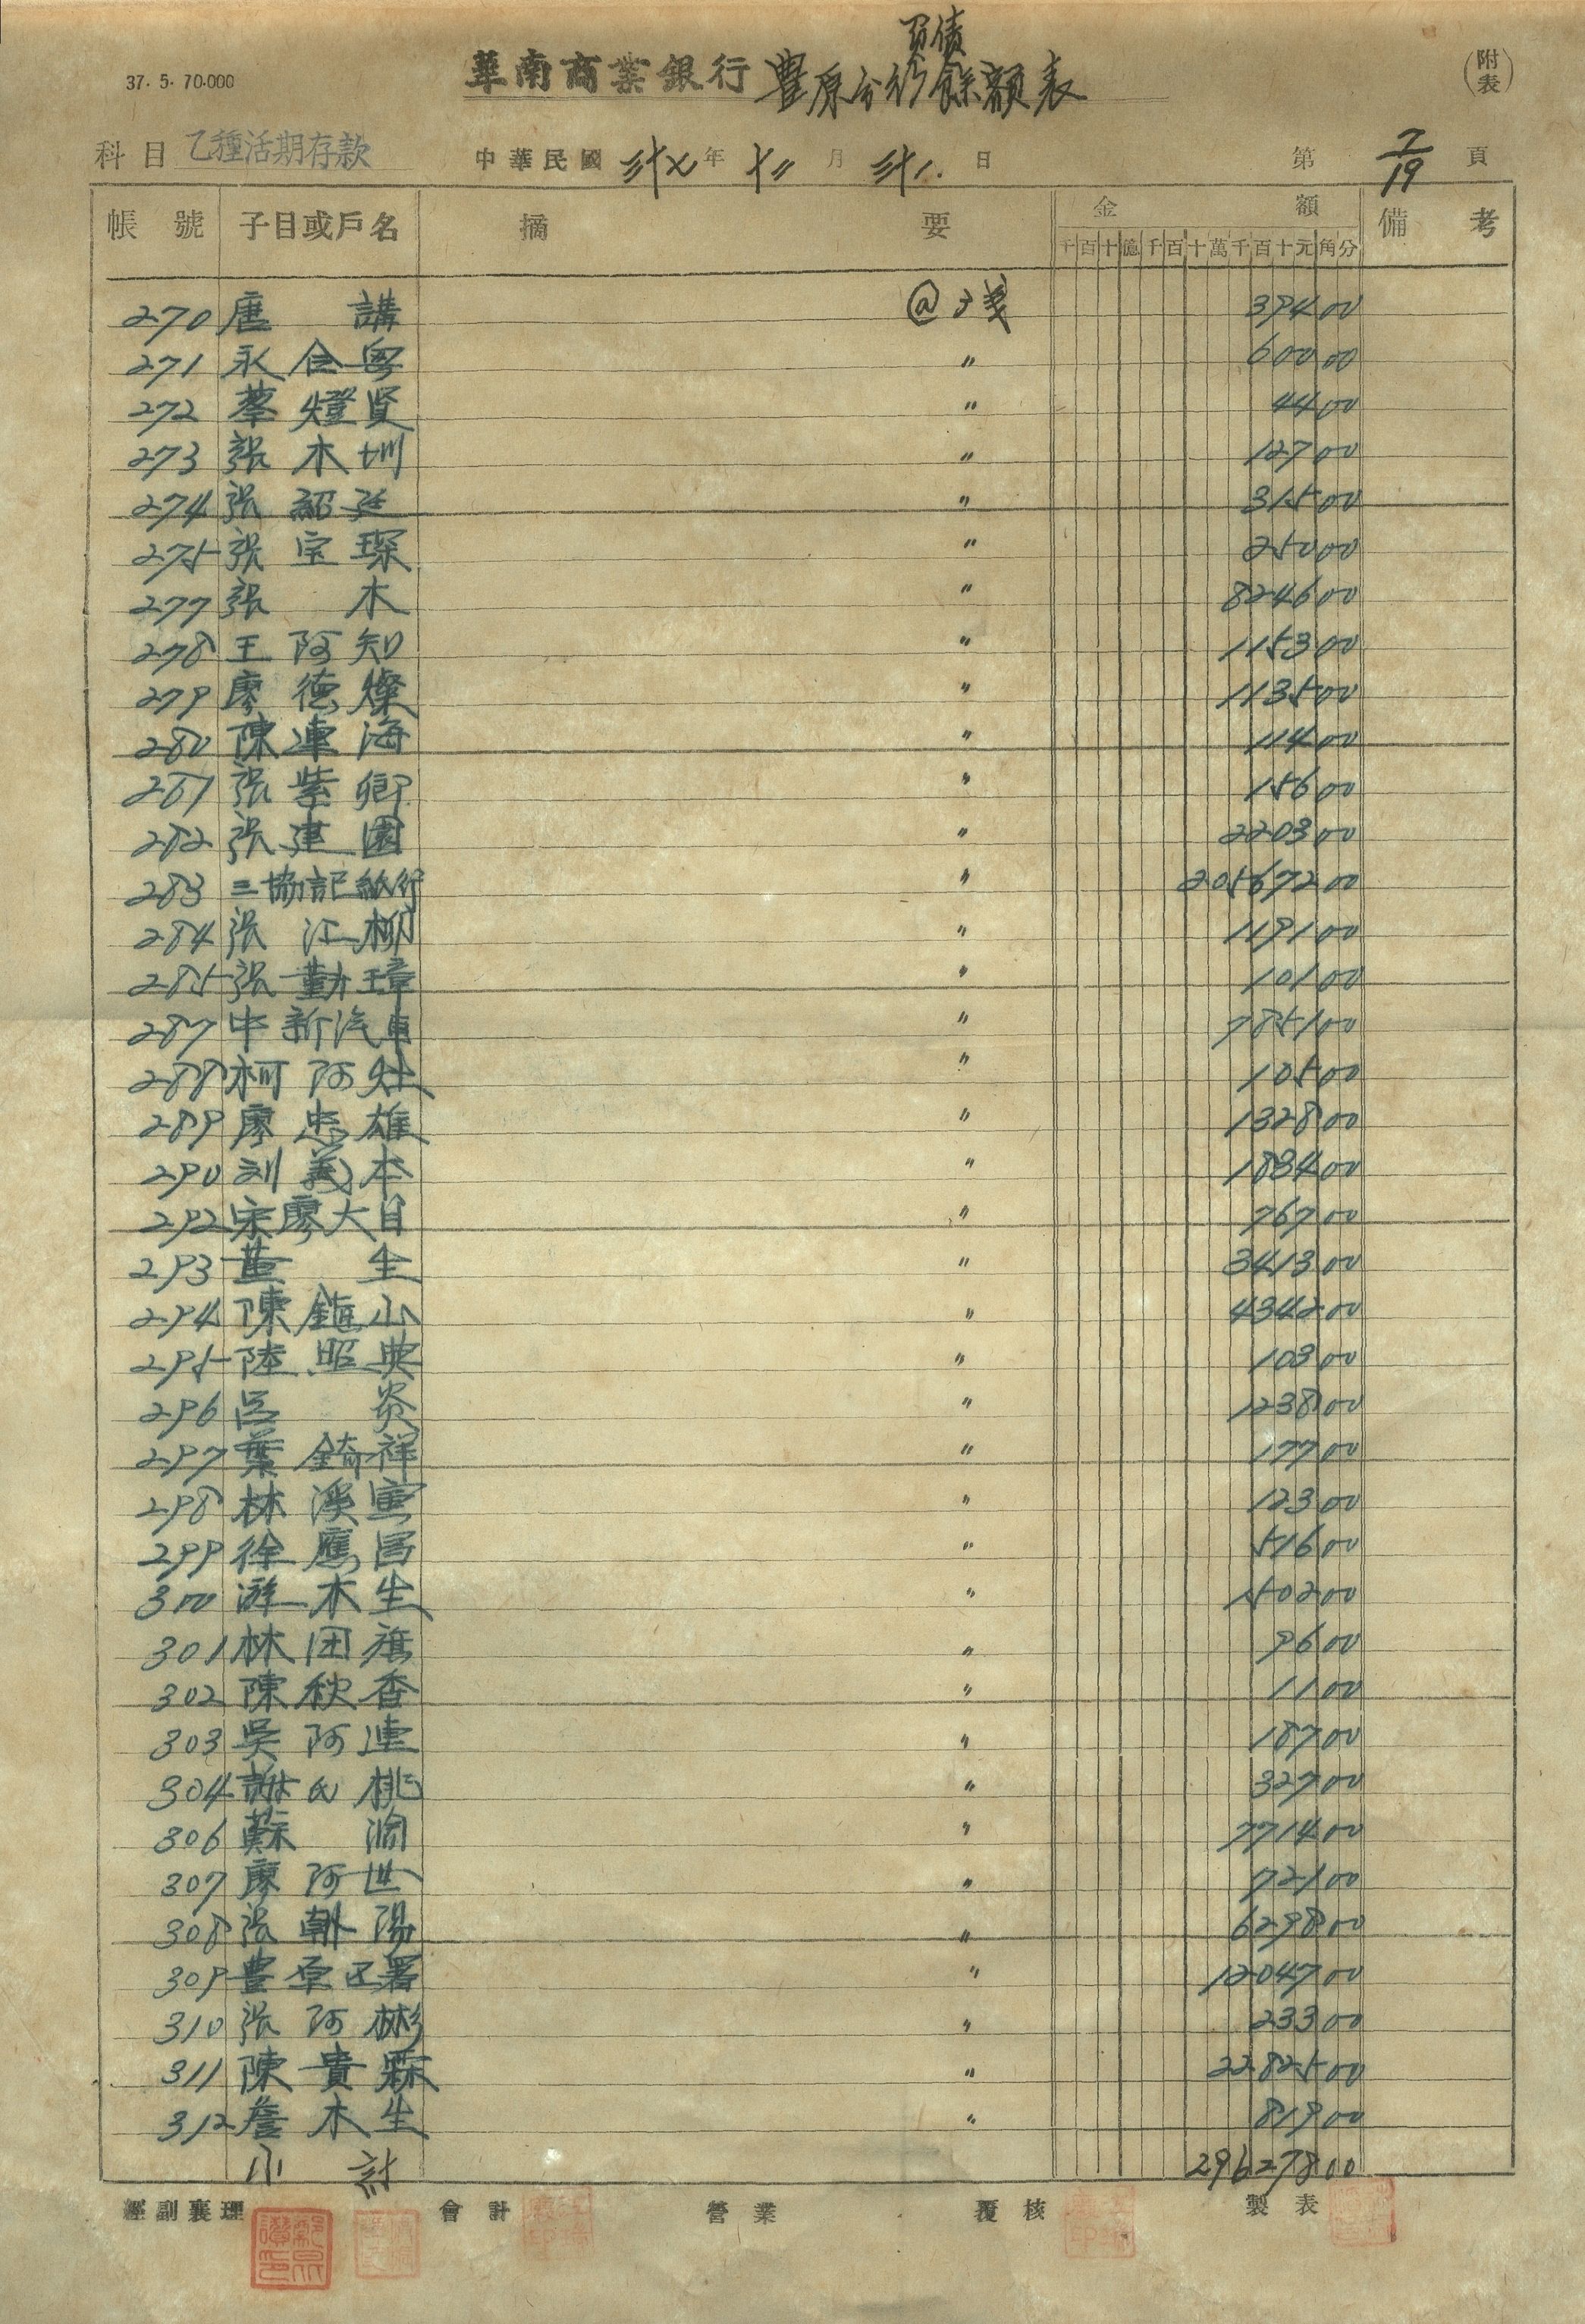 37. 5. 70.000
華南商業銀行豐原分行負債餘額表
(附表)
科目 乙種活期存款 中華民國 三十七 年 十二 月 三十一 日 第 7/19 頁
帳號 子目或戶名 摘要 金額 備考
千百十億千百十萬千百十元角分
270 唐講 @ 3 394 00
271 永合 〃 600 00
272 蔡燈賢 〃 44 00
273 張木圳 〃 127 00
274 張紹廷 〃 315 00
275 張宝琛 〃 250 00
277 張木 〃 8246 00
278 王阿知 〃 1153 00
279 廖德燦 〃 1135 00
280 陳連海 〃 114 00
281 張紫卿 〃 156 00
282 張建園 〃 2203 00
283 三協記紙行 〃 205672 00
284 張江柳 〃 1191 00
285 張勤璋 〃 101 00
287 中新汽車 〃 7851 00
288 柯阿灶 〃 105 00
289 廖忠雄 〃 1328 00
290 刘義本 〃 1834 00
292 宋廖大目 〃 767 00
293 董生 〃 3413 00
294 陳鎚山 〃 4342 00
295 陸昭典 〃 103 00
296 呂炎 〃 1238 00
297 葉錡祥 〃 177 00
298 林溪 〃 123 00
299 徐應昌 〃 516 00
300 游木生 〃 1502 00
301 林団旗 〃 96 00
302 陳秋香 〃 11 00
303 吳阿連 〃 187 00
304 謝氏桃 〃 327 00
306 蘇瀹 〃 7714 00
307 廖阿世 〃 721 00
308 張朝陽 〃 6298 00
309 豊原区署 〃 12047 00
310 張阿彬 〃 233 00
311 陳貴霖 〃 22825 00
312 詹木生 〃 819 00
小計 296278 00
經副襄理 會計 營業 覆核 製表